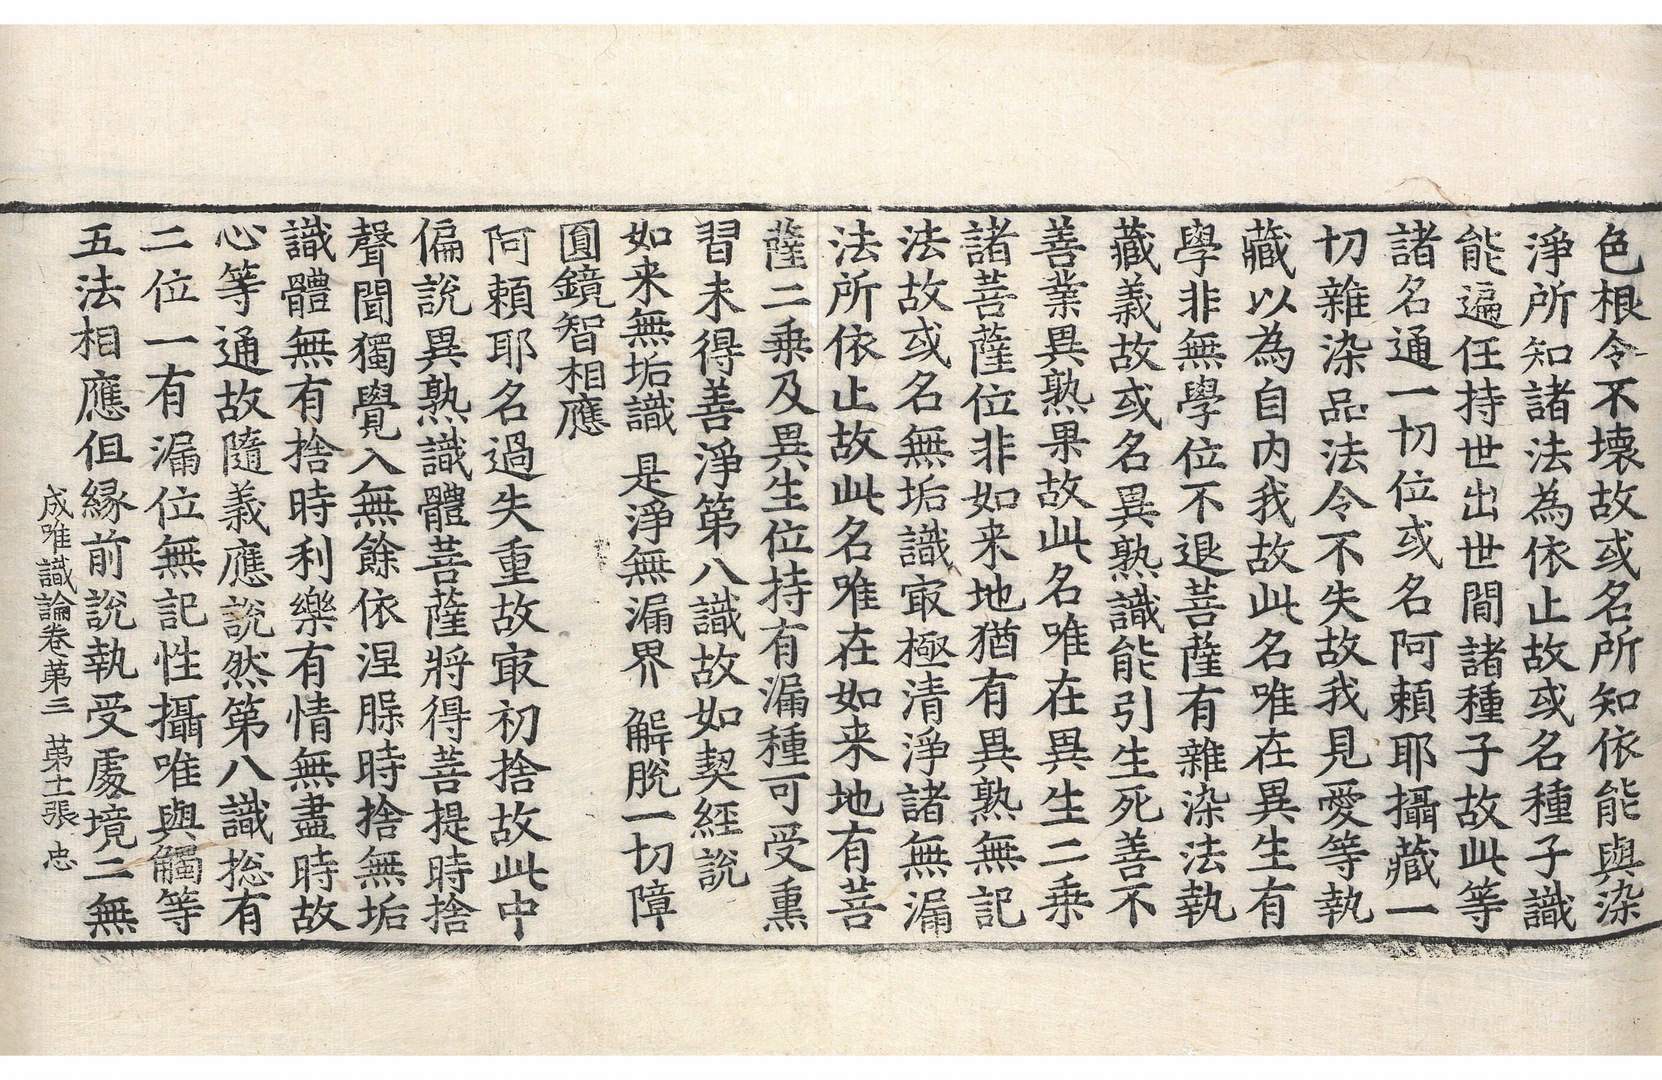 色根令不壞故或名所知依能與染
淨所知諸法為依止故或名種子識
能遍任持世出世間諸種子故此等
諸名通一切位或名阿頼耶攝藏一
切雜染品法令不失故我見愛等執
藏以為自內我故此名唯在異生有
學非無學位不退菩薩有雜染法執
藏義故或名異熟識能引生死善不
善業異熟果故此名唯在異生二乗
諸菩薩位非如来地猶有異熟無記
法故或名無垢識㝡極清淨諸無漏
法所依止故此名唯在如来地有菩
薩二乗及異生位持有漏種可受熏
習未得善淨第八識故如契經說
如来無垢識 是淨無漏界 解脫一切障
圓鏡智相應
阿頼耶名過失重故㝡初捨故此中
偏說異熟識體菩薩將得菩提時捨
聲聞獨覺入無餘依涅槃時捨無垢
識體無有捨時利樂有情無盡時故
心等通故隨義應說然第八識揔有
二位一有漏位無記性攝唯與觸等
五法相應但縁前說執受處境二無
成唯識論卷苐三 苐十一張 忠